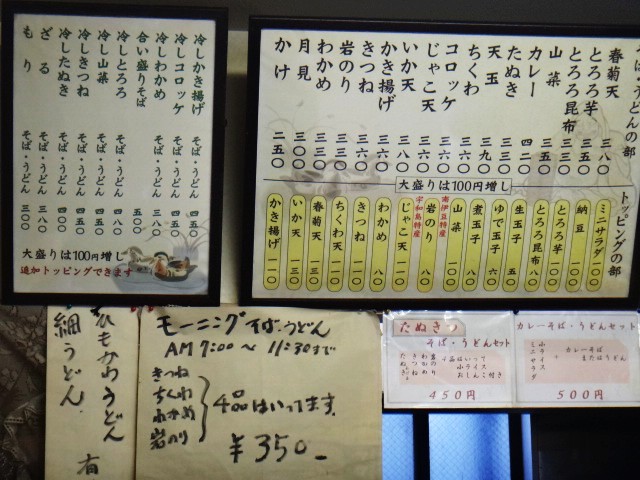 冷しかき揚げ そば・うどん 四五〇
冷しコロッケ そば・うどん 四五〇
冷しわかめ そば・うどん 四五〇
合い盛りそば 五〇〇
冷しとろろ そば・うどん 四五〇
冷し山菜 そば・うどん 四五〇
冷しきつね そば・うどん 四五〇
冷したぬき そば・うどん 四〇〇
ざる そば・うどん 三八〇
もり そば・うどん 三〇〇
大盛りは100円増し
追加トッピングできます
うどんの部
春菊天 三八〇
とろろ芋 三五〇
とろろ昆布 三三〇
山菜 三五〇
カレー 四二〇
たぬき 三三〇
天玉 三九〇
ちくわ 三三〇
コロッケ 三六〇
じゃこ天 三六〇
いか天 三八〇
かき揚げ 三六〇
きつね 三六〇
岩のり 三三〇
わかめ 三三〇
月見 三〇〇
かけ 二五〇
大盛りは100円増し
トッピングの部
ミニサラダ 一〇〇
納豆 一〇〇
とろろ芋 一〇〇
とろろ昆布 八〇
生玉子 五〇
ゆで玉子 六〇
煮玉子
山菜 一〇〇
南伊豆特産
岩のり 八〇
宇和島特産
じゃこ天 一一〇
わかめ 八〇
きつね 一一〇
ちくわ天 一一〇
春菊天 一三〇
いか天 一三〇
かき揚げ 一一〇
ひもかわうどん 有
細うどん
モーニングそば、うどん
AM 7:00〜11:30まで
きつね
ちくわ
わかめ
岩のり
4品はいってます
¥350-
たぬきつ
そば・うどんセット
4品はいって
山ライス
おしんこ付き
450円
カレーそば・うどんセット
カレーそば
またはうどん
+
500円